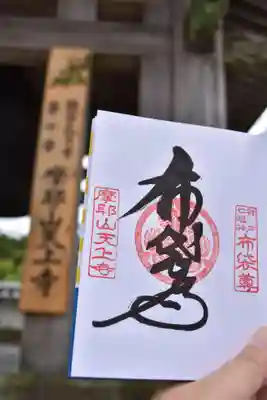 布袋尊
神戸
七福神
布袋尊
摩耶山天上寺
摩耶山天上寺